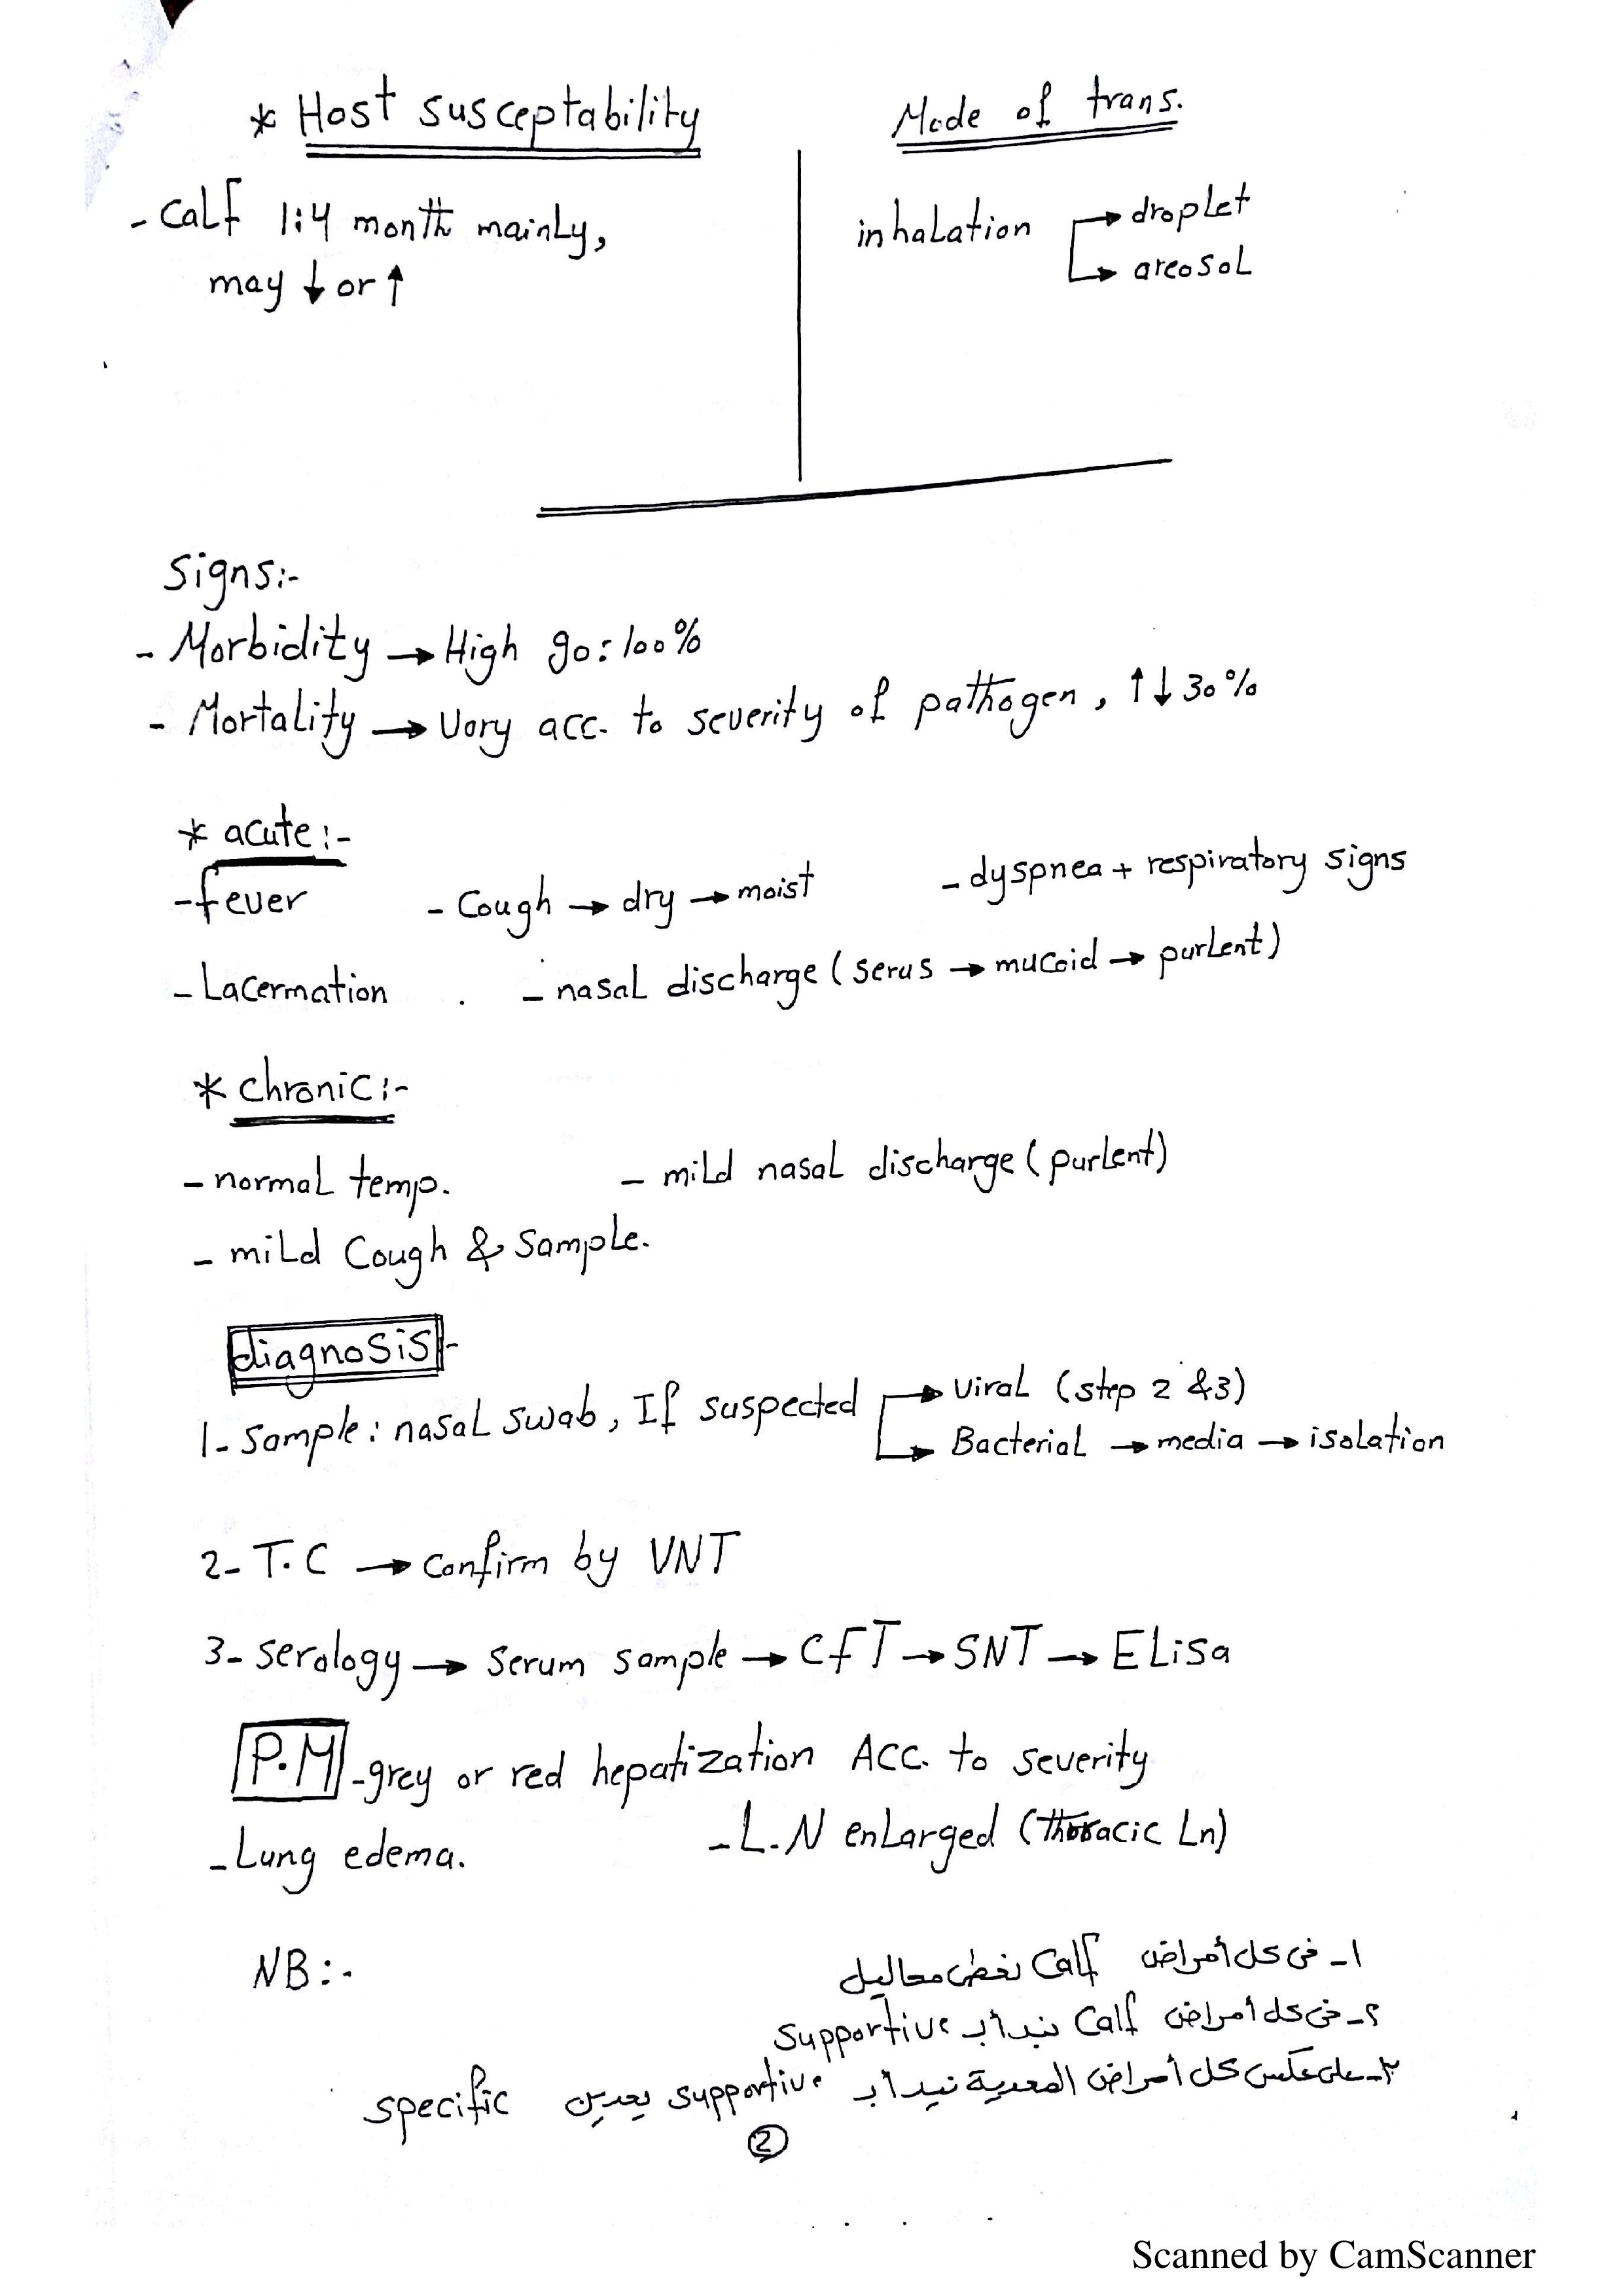 * Host susceptability
- Calf 1:4 month mainly,
may ↓ or ↑
Mode of trans.
inhalation → droplet
→ areosol
Signs:-
- Morbidity → High 90:100%
- Mortality → Vary acc. to severity of pathogen, ↑↓ 30%
* acute:-
- fever - Cough → dry → moist - dyspnea + respiratory signs
- Lacermation - nasal discharge (serus → mucoid → purlent)
* chronic:-
- normal temp. - mild nasal discharge (purlent)
- mild Cough & Sample.
diagnosis:-
1- Sample: nasal swab, If suspected → Viral (step 2 &3)
→ Bacterial → media → isolation
2- T.C → Confirm by VNT
3- Serology → Serum sample → CFT → SNT → ELisa
P.M - grey or red hepatization ACC. to severity
- Lung edema. - L.N enlarged (Thoracic Ln)
NB:-
١- فى كل أمراض Calf نغطى محاليل
٢- فى كل أمراض Calf نبدأ بـ supportive
٣- على عكس كل أمراض المعدية نبدأ بـ supportive يعدين specific
2
Scanned by CamScanner